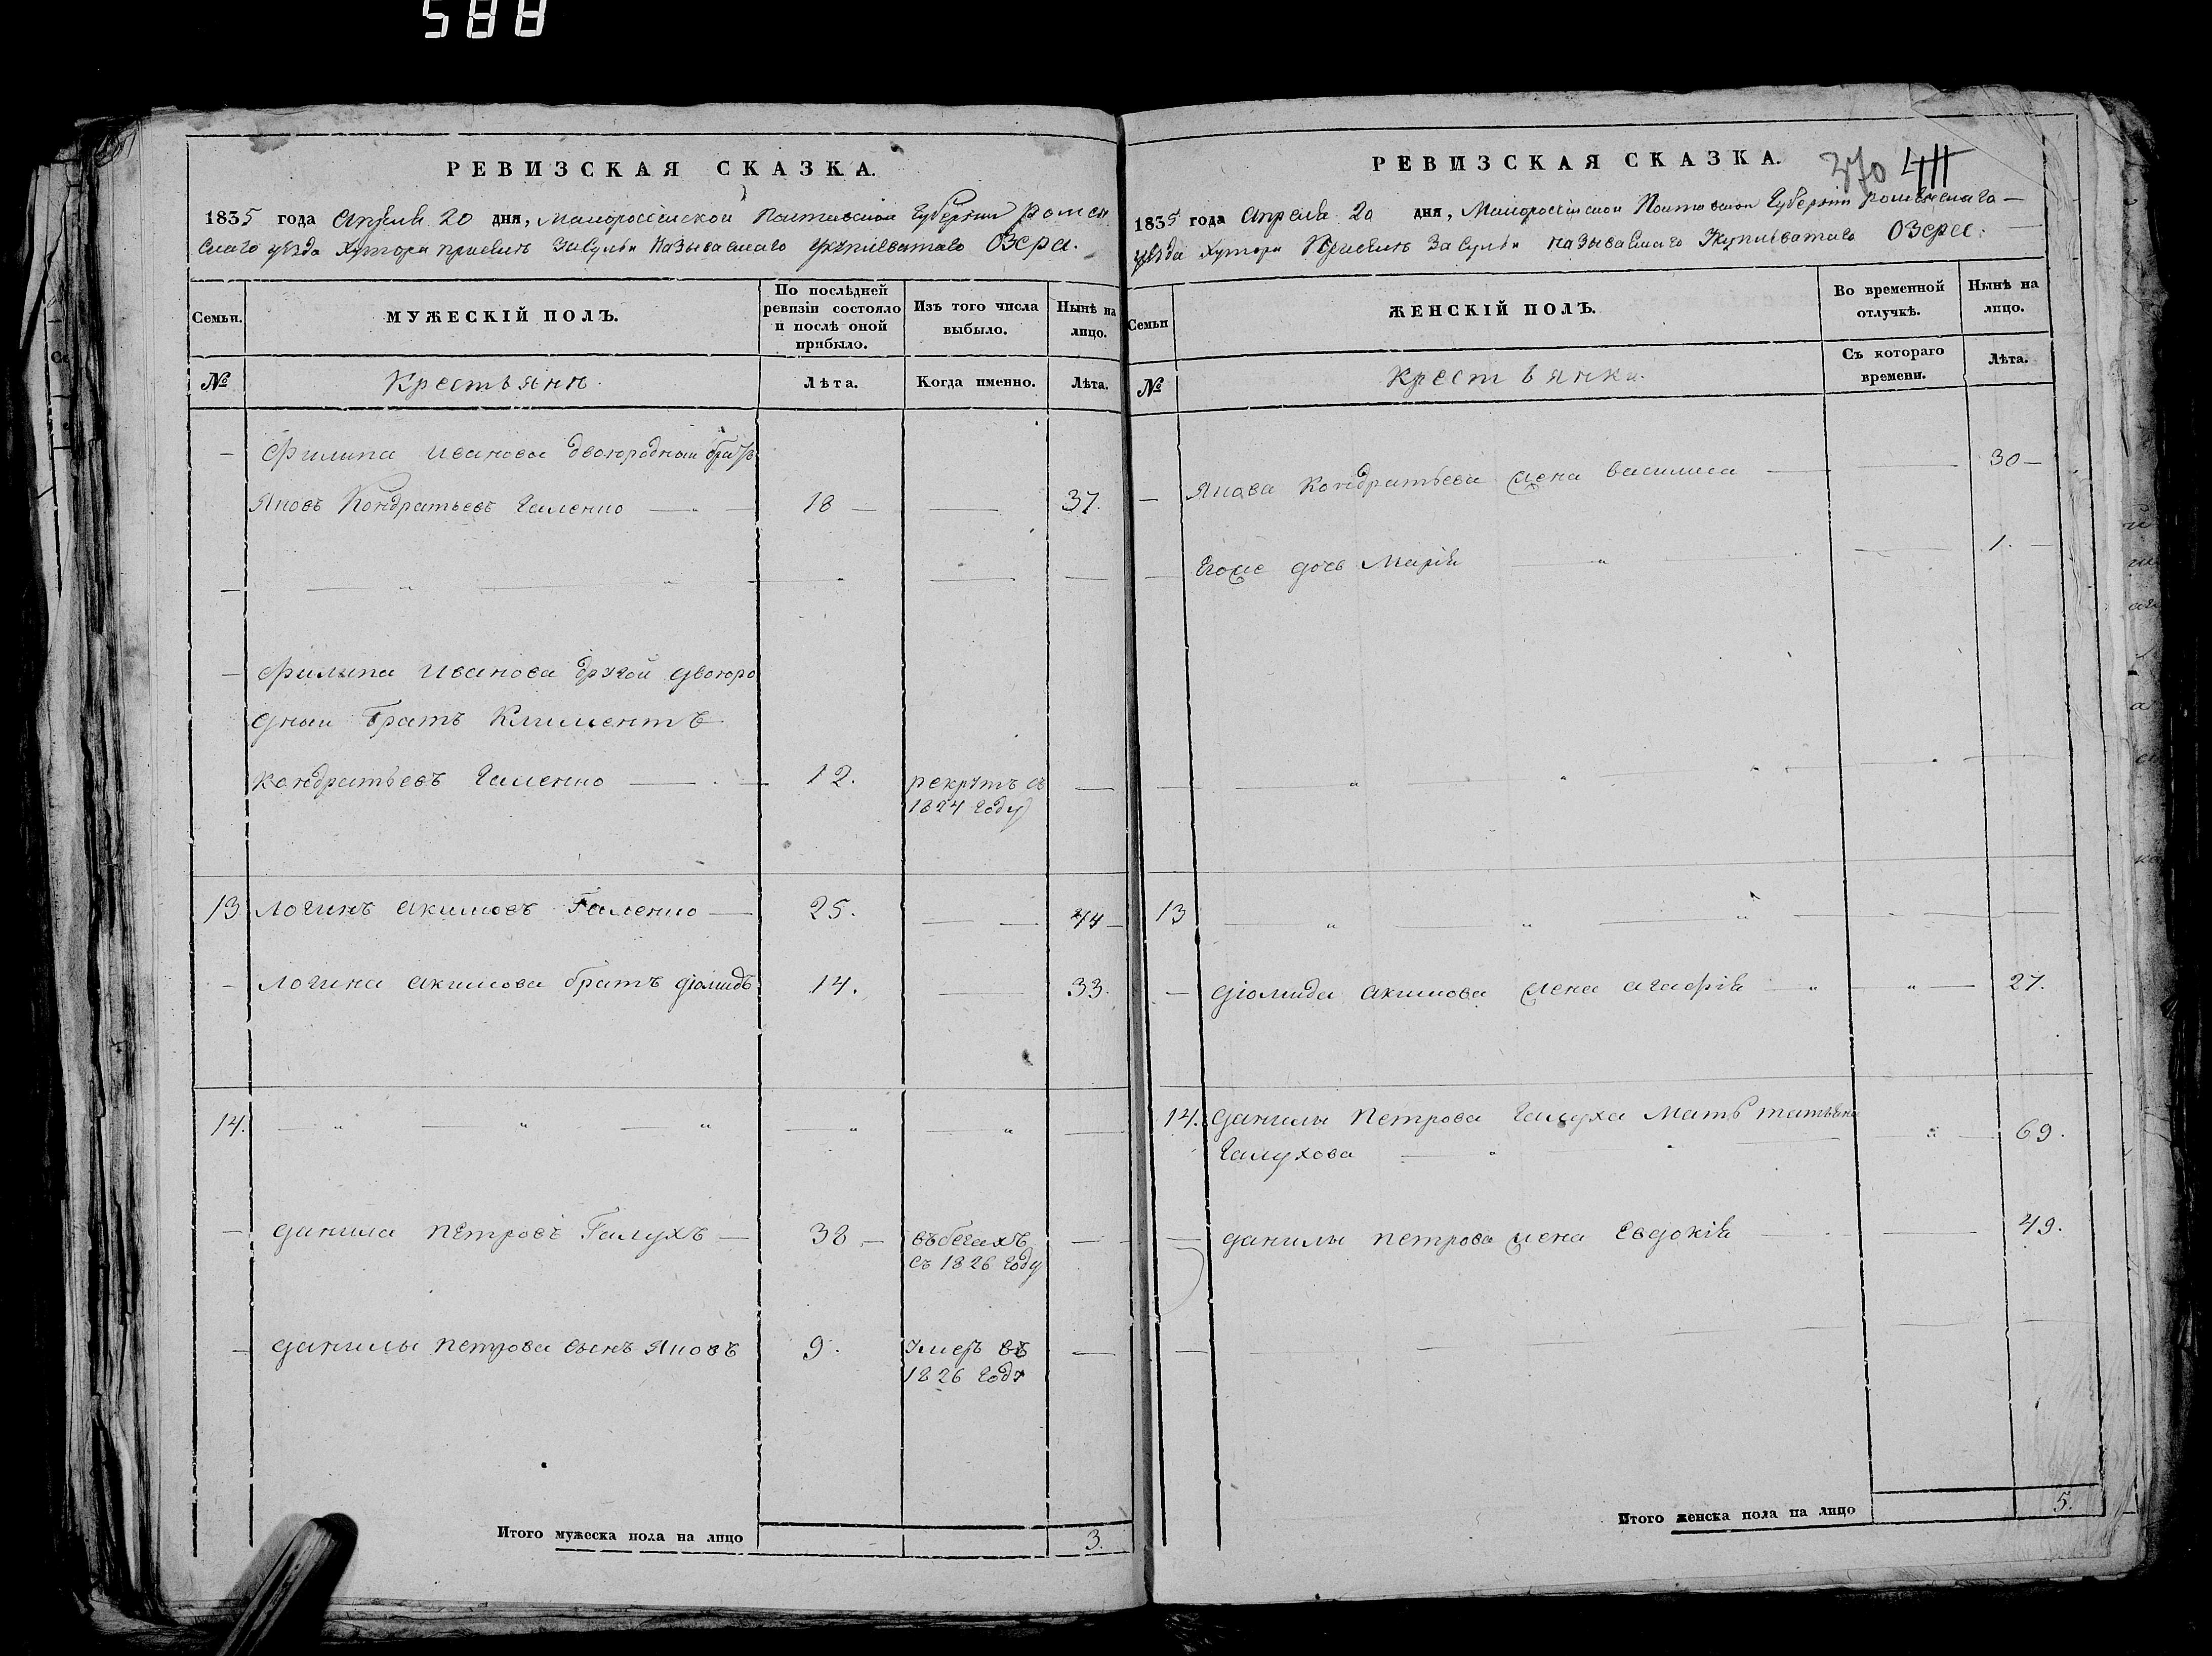 588
РЕВИЗСКАЯ СКАЗКА.
1835 года Апреля 20 дня, Малороссійской Полтавской Губерніи Ромен
скаго уѣзда Хутора при рекѣ называемаго Озера.
Семьи.
МУЖЕСКІЙ ПОЛЪ.
По послѣдней ревизіи состояло и послѣ оной прибыло.
Изъ того числа выбыло.
Нынѣ на лицо.
№
Крестьяни
Лѣта.
Когда именно.
Лѣта.
— Филипа Иванова двоюродный братъ
Яковъ Кондратьевъ Галенко — 18 — — 37.
— Филипа Иванова другой двоюро
дный братъ Климентъ
Кондратьевъ Галенко — 12. рекрутъ въ —
1824 году
13 Логинъ Акимовъ Галенко — 25. — 44 —
— Логина Акимова братъ Діомидъ 14. — 33.
14.
— Данила Петровъ Галухъ — 38 — въ бегахъ —
съ 1826 году
— Данилы Петрова сынъ Яковъ 9. умеръ въ —
1826 году
Итого мужеска пола на лицо 3.
370 411
РЕВИЗСКАЯ СКАЗКА.
1835 года Апреля 20 дня, Малороссійской Полтавской Губерніи Роменскаго —
уѣзда Хутора называемаго Озера.
Семьи
ЖЕНСКІЙ ПОЛЪ.
Во временной отлучкѣ.
Нынѣ на лицо.
№
Крестьянки.
Съ котораго времени.
Лѣта.
— Якова Кондратьева жена Василиса — — 30 —
— Егоже дочь Марія — 1. —
13
— Діомида Акимова жена Агафія — — 27.
14. Данилы Петрова Галуха Мать Татьяна
Галухова — 69.
— Данилы Петрова жена Евдокія — 49.
Итого женска пола на лицо 5.